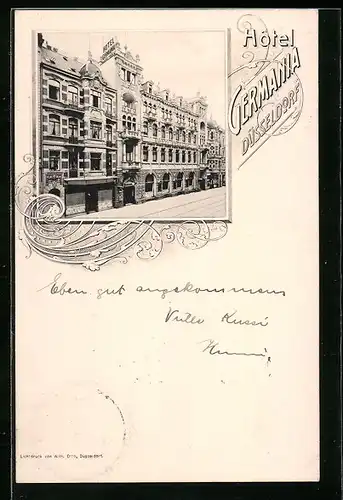 HOTEL
Hôtel
GERMANIA
DÜSSELDORF
Eben gut angekommen
Viele Kussi
Lichtdruck von Wilh. Otto, Düsseldorf.